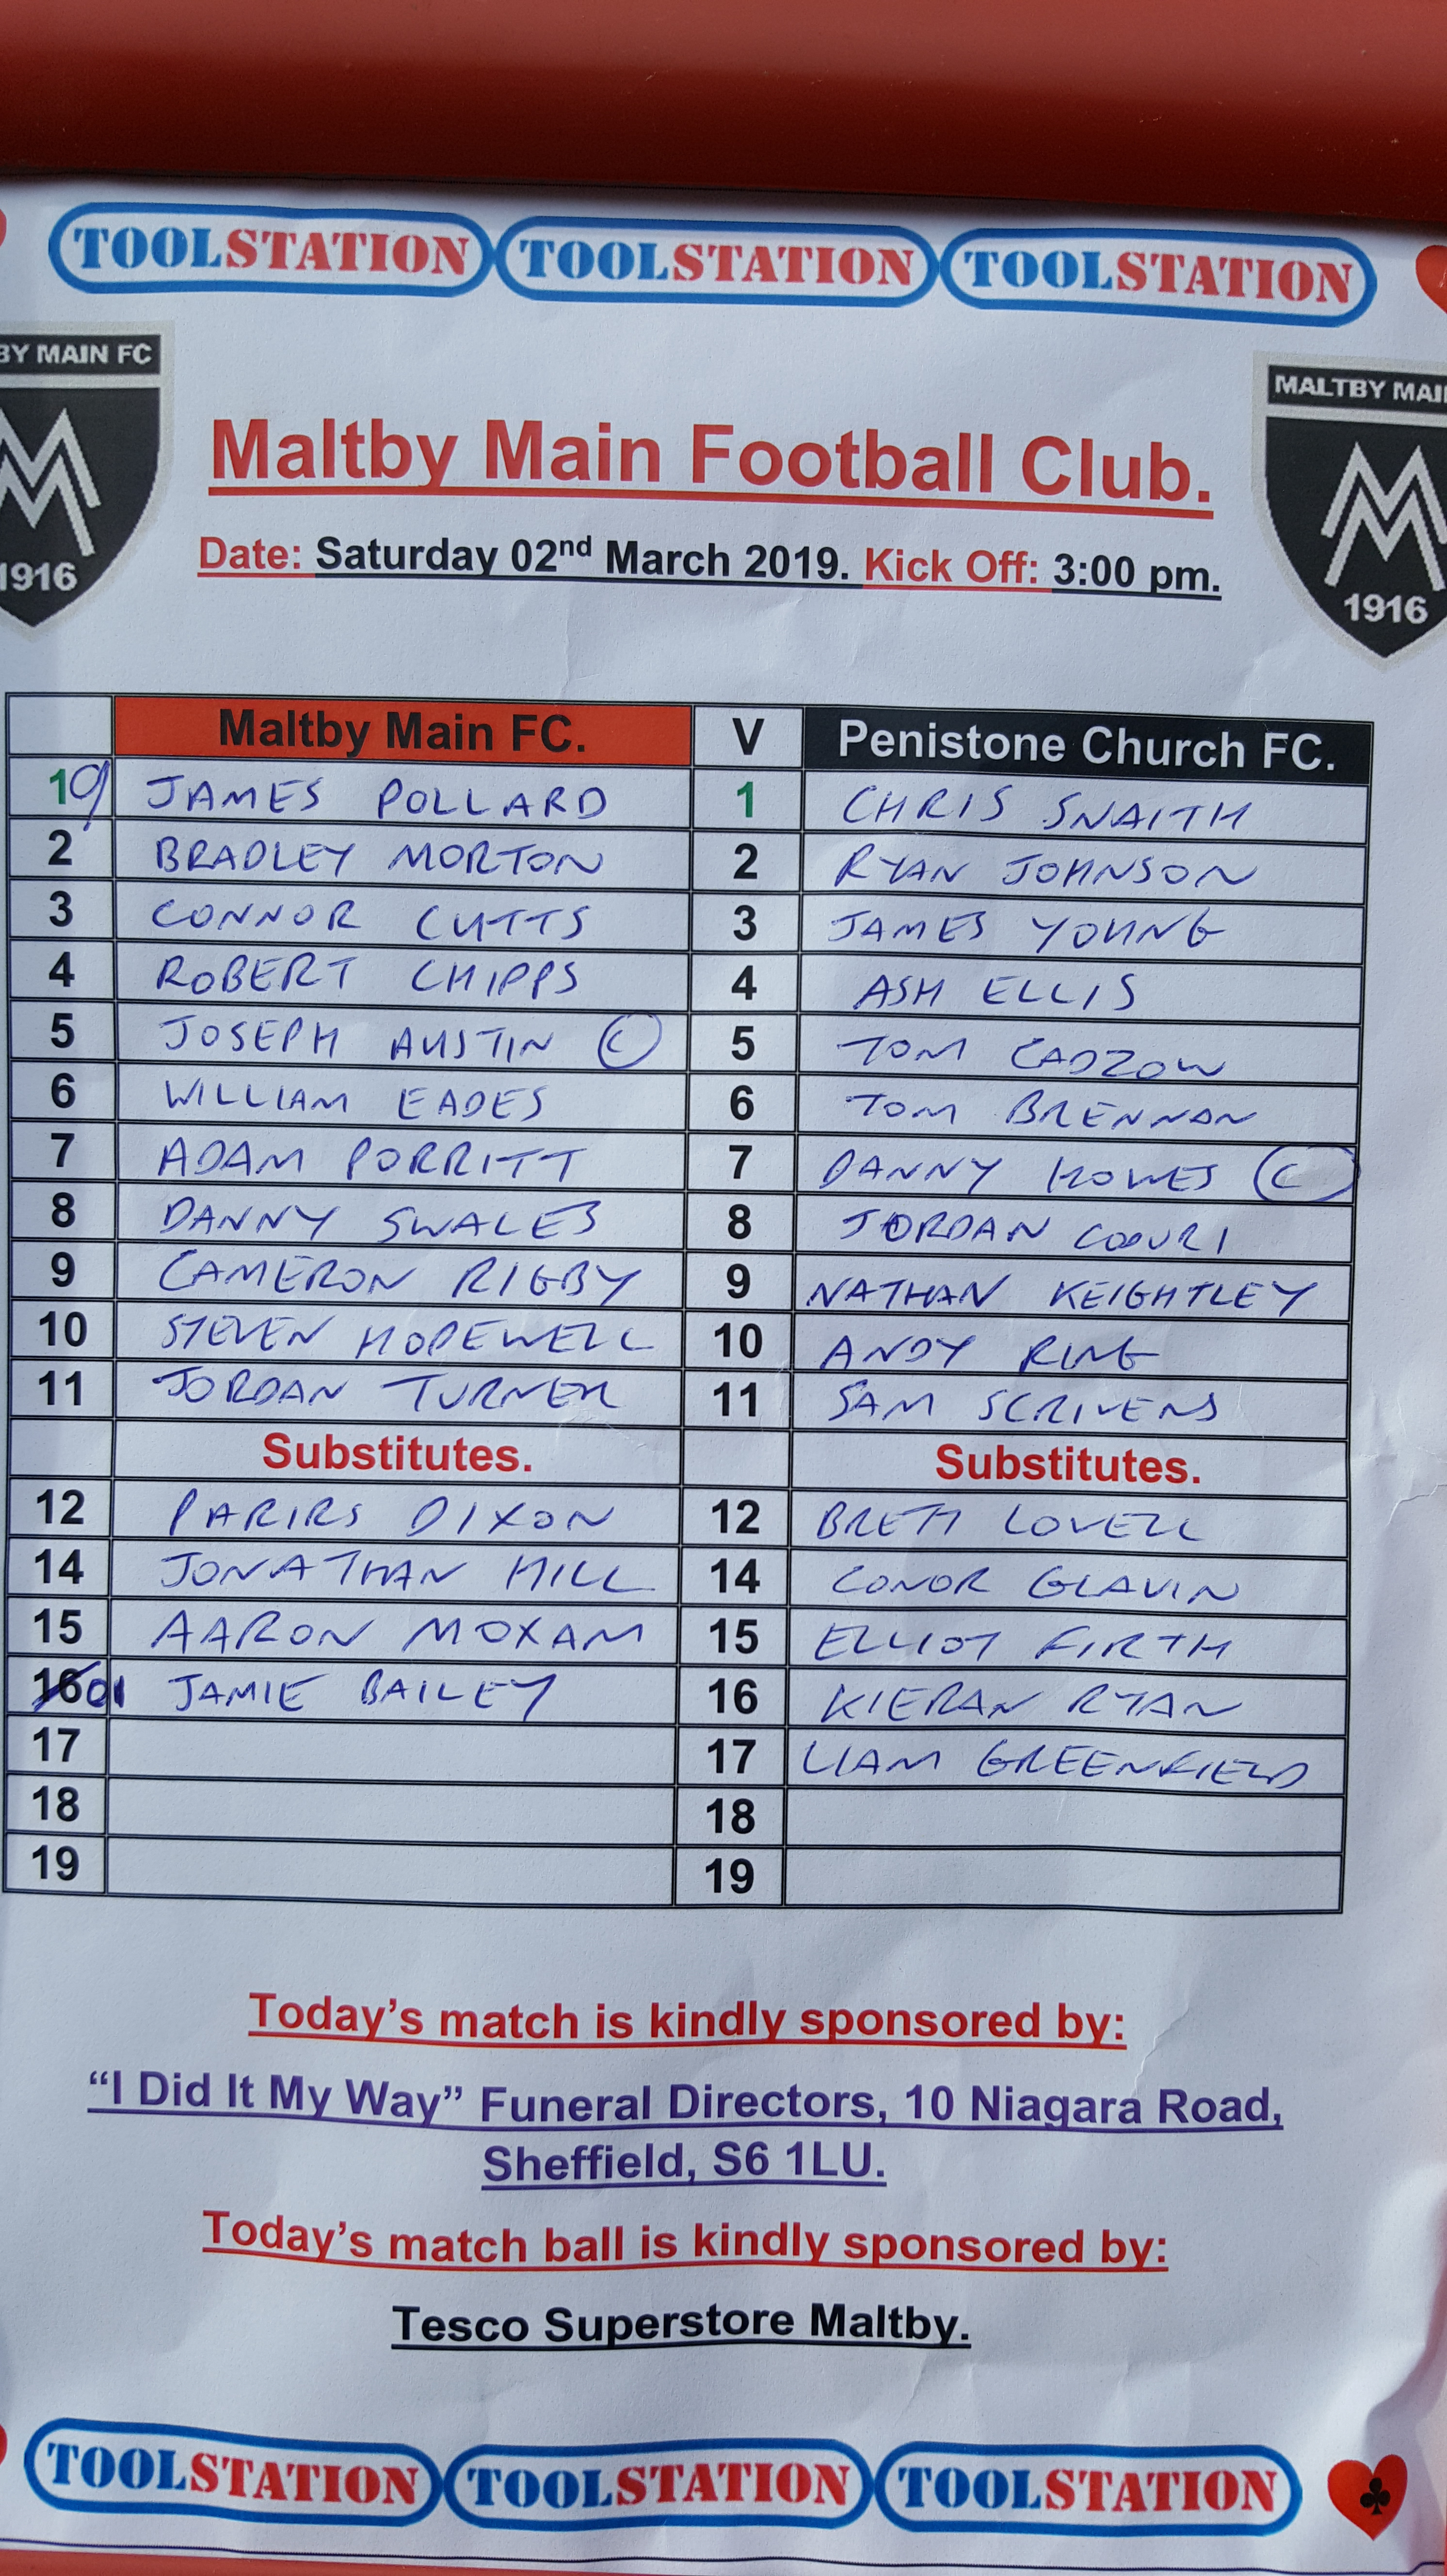 TOOLSTATION TOOLSTATION TOOLSTATION
BY MAIN FC
MALTBY MAI
1916
1916
Maltby Main Football Club.
Date: Saturday 02nd March 2019. Kick Off: 3:00 pm.
Maltby Main FC. V Penistone Church FC.
19 JAMES POLLARD 1 CHRIS SNAITH
2 BRADLEY MORTON 2 RYAN JOHNSON
3 CONNOR CUTTS 3 JAMES YOUNG
4 ROBERT CHIPPS 4 ASH ELLIS
5 JOSEPH AUSTIN C 5 TOM CADZOW
6 WILLIAM EADES 6 TOM BRENNAN
7 ADAM PORRITT 7 DANNY HOWES C
8 DANNY SWALES 8 JORDAN COOURI
9 CAMERON RIGBY 9 NATHAN KEIGHTLEY
10 STEVEN HOPEWELL 10 ANDY RING
11 JORDAN TURNER 11 SAM SCRIVENS
Substitutes. Substitutes.
12 PARIRS DIXON 12 BRETT LOVELL
14 JONATHAN HILL 14 CONOR GLAVIN
15 AARON MOXAM 15 ELLIOT FIRTH
16 01 JAMIE BAILEY 16 KIERAN RYAN
17 17 LIAM GREENFIELD
18 18
19 19
Today's match is kindly sponsored by:
“I Did It My Way” Funeral Directors, 10 Niagara Road,
Sheffield, S6 1LU.
Today's match ball is kindly sponsored by:
Tesco Superstore Maltby.
TOOLSTATION TOOLSTATION TOOLSTATION